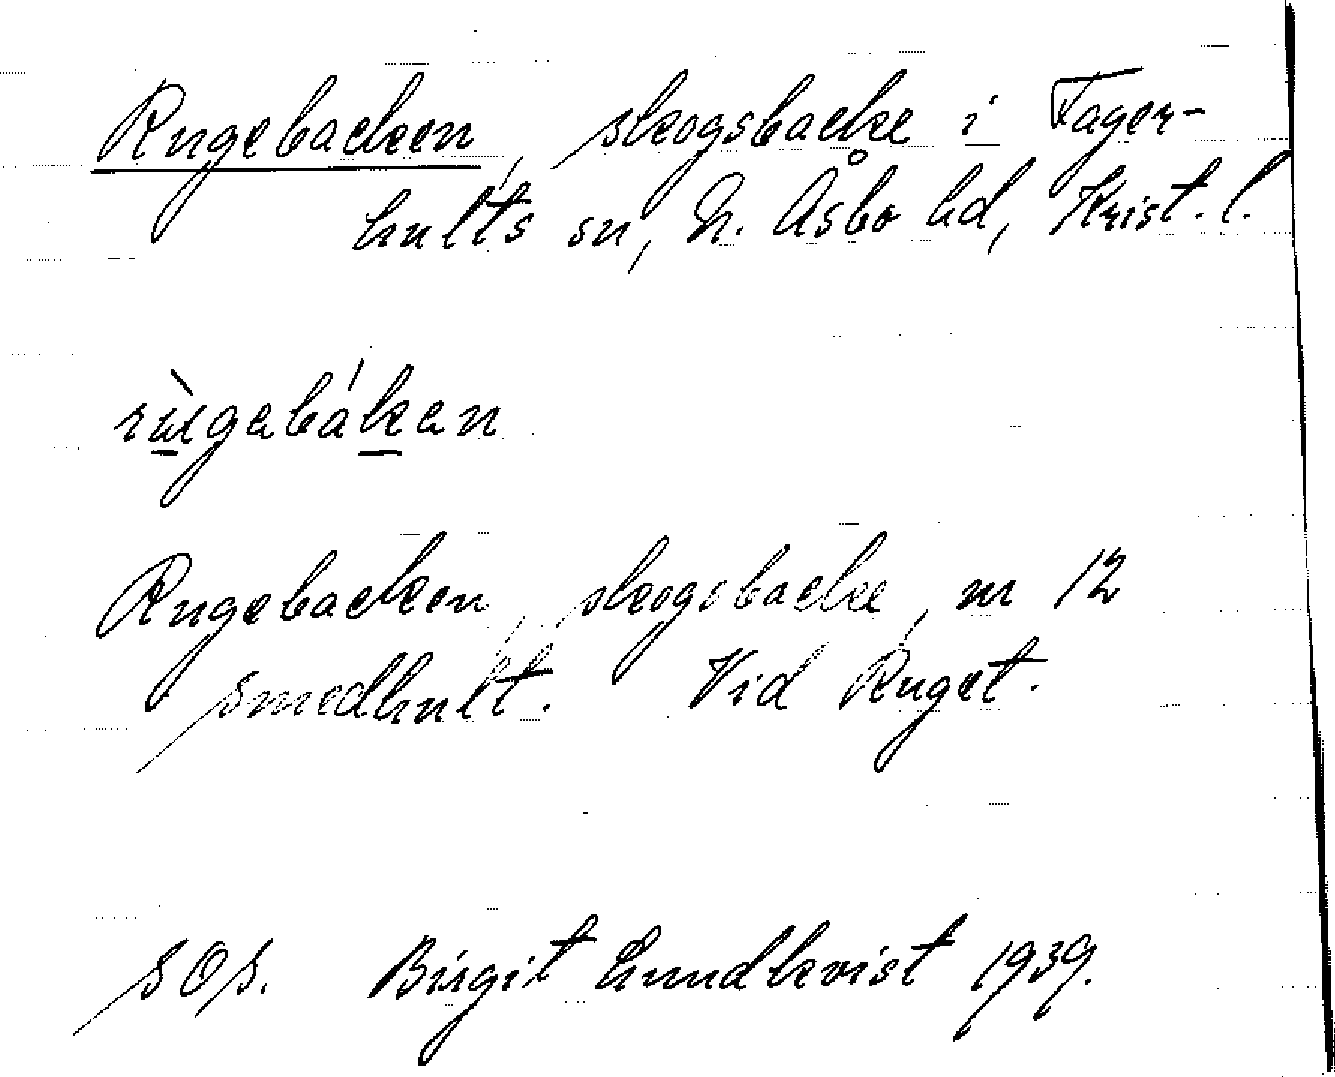 Rugebacken, skogsbacke i Fager-
hults sn, N. Åsbo hd, Krist. l.
rùgebáken
Rugebacken, skogsbacke, nr 12
Smedhult. Vid Ruget.
SOS. Birgit Lundkvist 1939.